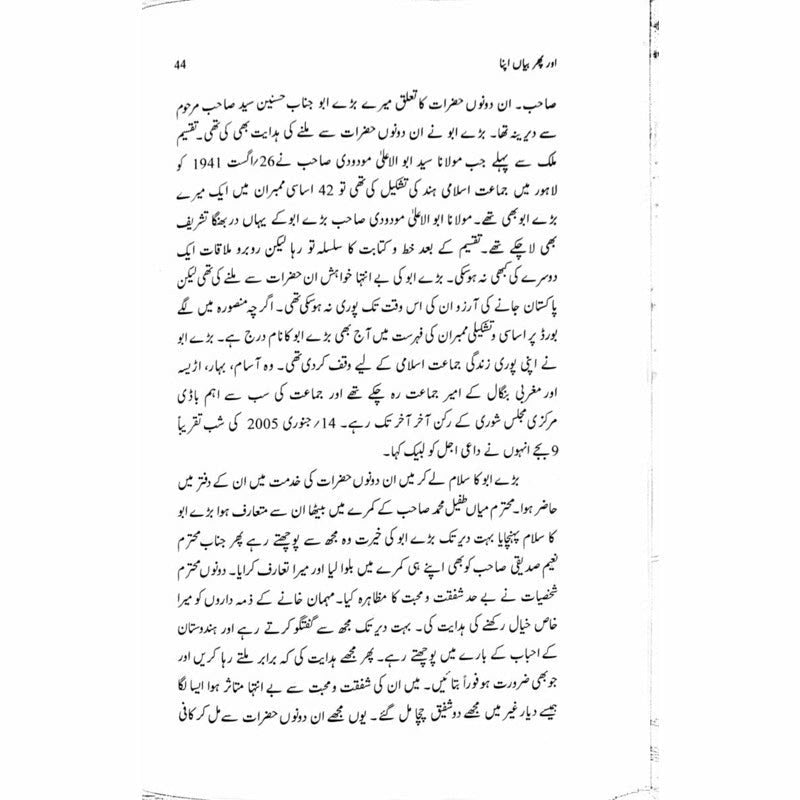 اور پھر بیاں اپنا
44
صاحب۔ ان دونوں حضرات کا تعلق میرے بڑے ابو جناب حسنین سید صاحب مرحوم
سے دیرینہ تھا۔ بڑے ابو نے ان دونوں حضرات سے ملنے کی ہدایت بھی کی تھی۔ تقسیم
ملک سے پہلے جب مولانا سید ابو الاعلیٰ مودودی صاحب نے 26/اگست 1941 کو
لاہور میں جماعت اسلامی ہند کی تشکیل کی تھی تو 42 اساسی ممبران میں ایک میرے
بڑے ابو بھی تھے۔ مولانا ابو الاعلیٰ مودودی صاحب بڑے ابو کے یہاں دربھنگا تشریف
بھی لا چکے تھے۔ تقسیم کے بعد خط و کتابت کا سلسلہ تو رہا لیکن روبرو ملاقات ایک
دوسرے کی کبھی نہ ہوسکی۔ بڑے ابو کی بے انتہا خواہش ان حضرات سے ملنے کی تھی لیکن
پاکستان جانے کی آرزو ان کی اس وقت تک پوری نہ ہوسکی تھی۔ اگر چہ منصورہ میں لگے
بورڈ پر اساسی و تشکیلی ممبران کی فہرست میں آج بھی بڑے ابو کا نام درج ہے۔ بڑے ابو
نے اپنی پوری زندگی جماعت اسلامی کے لیے وقف کردی تھی۔ وہ آسام، بہار، اڑیسہ
اور مغربی بنگال کے امیر جماعت رہ چکے تھے اور جماعت کی سب سے اہم باڈی
مرکزی مجلس شوری کے رکن آخر آخر تک رہے۔ 14/جنوری 2005 کی شب تقریباً
9 بجے انہوں نے داعی اجل کو لبیک کہا۔
بڑے ابو کا سلام لے کر میں ان دونوں حضرات کی خدمت میں ان کے دفتر میں
حاضر ہوا۔ محترم میاں طفیل محمد صاحب کے کمرے میں بیٹھا ان سے متعارف ہوا بڑے ابو
کا سلام پہنچایا بہت دیر تک بڑے ابو کی خیرت وہ مجھ سے پوچھتے رہے پھر جناب محترم
نعیم صدیقی صاحب کو بھی اپنے ہی کمرے میں بلوا لیا اور میرا تعارف کرایا۔ دونوں محترم
شخصیات نے بے حد شفقت و محبت کا مظاہرہ کیا۔ مہمان خانے کے ذمہ داروں کو میرا
خاص خیال رکھنے کی ہدایت کی۔ بہت دیر تک مجھ سے گفتگو کرتے رہے اور ہندوستان
کے احباب کے بارے میں پوچھتے رہے۔ پھر مجھے ہدایت کی کہ برابر ملتے رہا کریں اور
جو بھی ضرورت ہو فوراً بتائیں۔ میں ان کی شفقت و محبت سے بے انتہا متاثر ہوا ایسا لگا
جیسے دیار غیر میں مجھے دو شفیق چچا مل گئے۔ یوں مجھے ان دونوں حضرات سے مل کر کافی